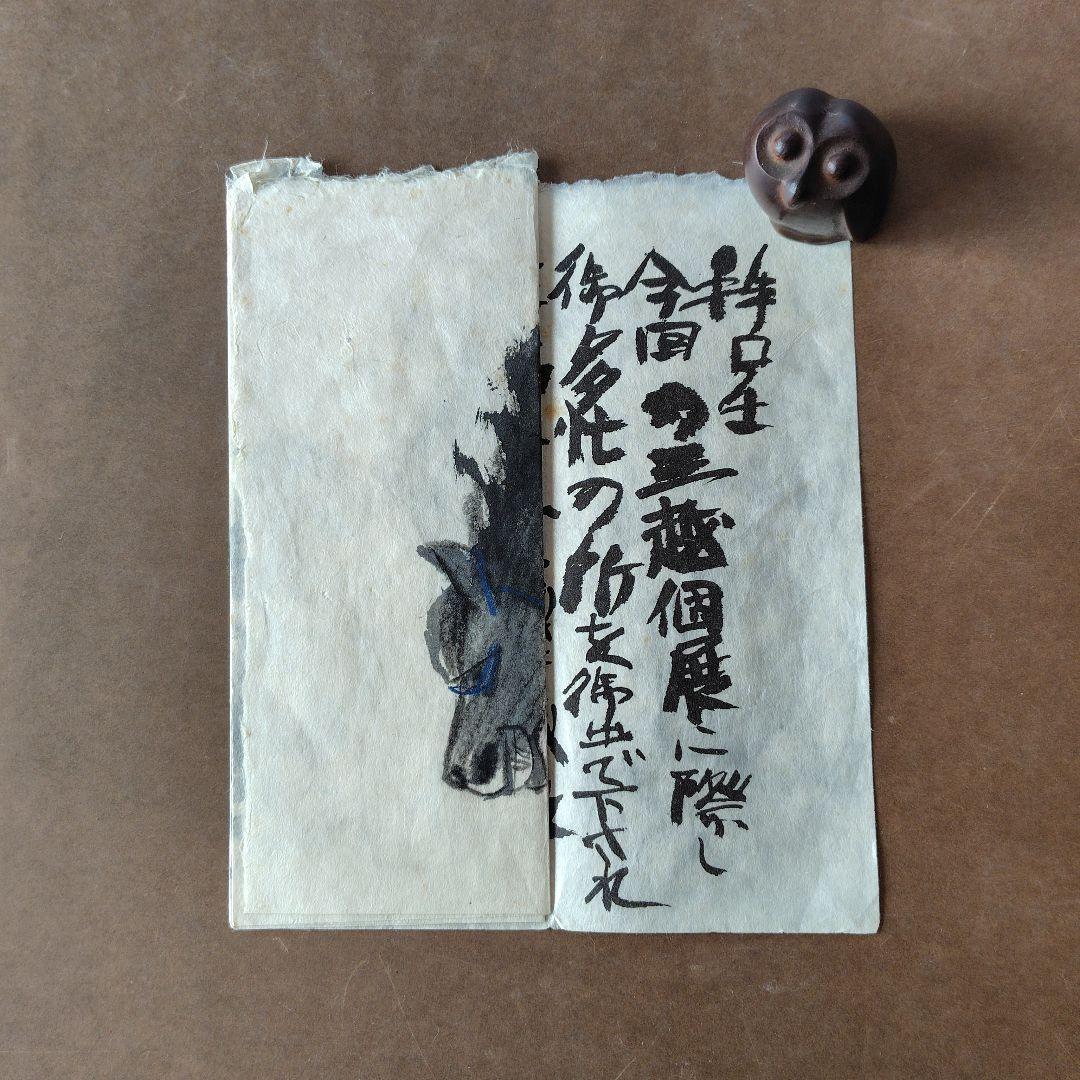 今回の三越個展に際し
御多忙の所を御出で下され